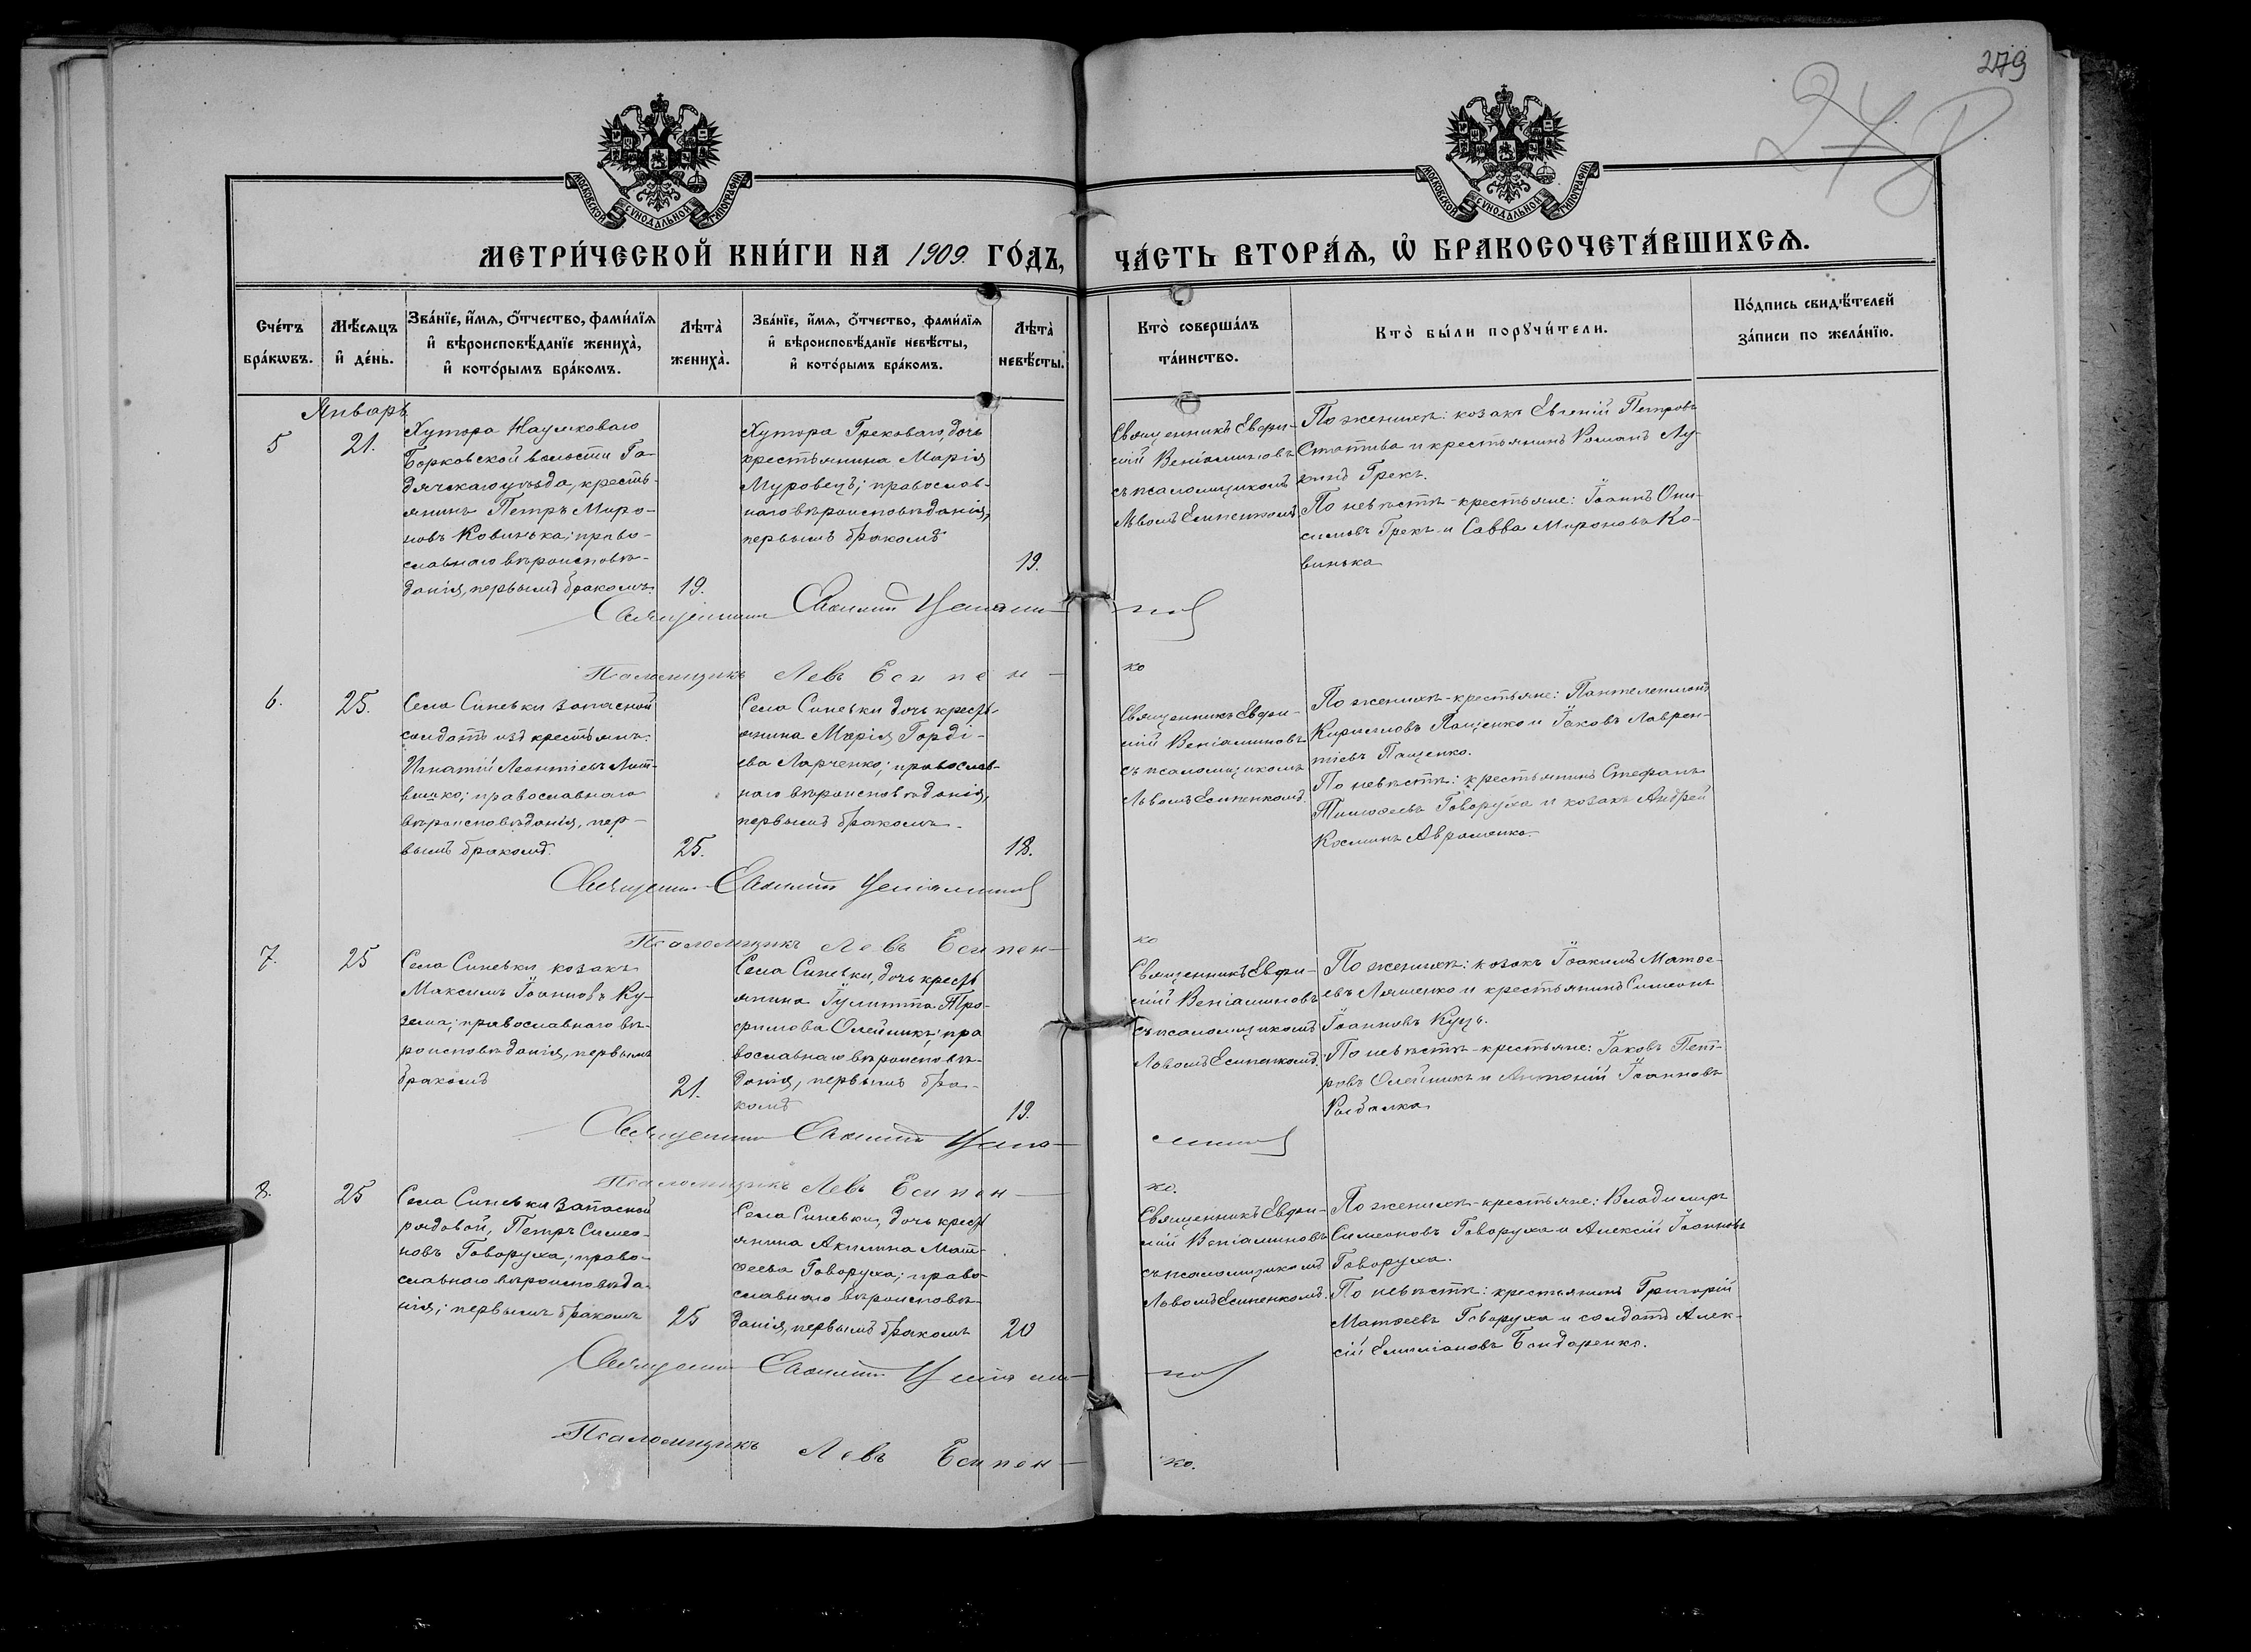 279
278
МОСКОВСКОЙ СѴНОДАЛЬНОЙ ТИПОГРАФІИ
МОСКОВСКОЙ СѴНОДАЛЬНОЙ ТИПОГРАФІИ
МЕТРИ́ЧЕСКОЙ КНИ́ГИ НА 1909 ГО́ДЪ, ЧА́СТЬ ВТОРА́Ѧ, Ѡ҆ БРАКОСОЧЕТА́ВШИХСѦ.
Сче́тъ
бра́кѡвъ.
Мѣ́сѧцъ
и҆ де́нь.
Зва́нїе, и҆́мѧ, ѻ҆́тчество, фами́лїѧ
и҆ вѣроисповѣ́данїе жениха̀,
и҆ кото́рымъ бра́комъ.
Лѣ́та̀
жениха̀.
Зва́нїе, и҆́мѧ, ѻ҆́тчество, фами́лїѧ
и҆ вѣроисповѣ́данїе невѣ́сты,
и҆ кото́рымъ бра́комъ.
Лѣ́та̀
невѣ́сты.
Кто̀ соверша́лъ
та́инство.
Кто̀ бы́ли порꙋчи́тели.
По́дпись свидѣ́телей
за́писи по жела́нїю.
Январь
5
21.
Хутора Наумковаго
Борковской волости Га-
дячскаго уѣзда, кресть-
янинъ Петръ Миро-
новъ Ковинька; право-
славнаго вѣроисповѣ-
данія, первымъ бракомъ.
19.
Хутора Грековаго, дочь
крестьянина Марія
Муровецъ; православ-
наго вѣроисповѣданія,
первымъ бракомъ
19.
Священникъ Евфи-
мій Веніаминовъ
съ псаломщикомъ
Львомъ Есипенкомъ.
По женихѣ: козакъ Евгеній Петровъ
Стотива и крестьянинъ Романъ Лу-
кинъ Грекъ.
По невѣстѣ - крестьяне: Іоаннъ Они-
симовъ Грекъ и Савва Мироновъ Ко-
винька
Священникъ Евфимій Веніами-
новъ
Псаломщикъ Левъ Есипен-
ко
6.
25.
Села Синевки запасной
солдатъ изъ крестьянъ
Игнатій Леонтіевъ Лит-
вишко; православнаго
вѣроисповѣданія, пер-
вымъ бракомъ.
25.
Села Синевки дочь кресть-
янина Марія Горді-
ева Ларченко; православ-
наго вѣроисповѣданія,
первымъ бракомъ.
18.
Священникъ Евфи-
мій Веніаминовъ
съ псаломщикомъ
Львомъ Есипенкомъ.
По женихѣ - крестьяне: Пантелеимонъ
Кирилловъ Пащенко и Іаковъ Лаврен-
тіевъ Пащенко.
По невѣстѣ: крестьянинъ Стефанъ
Тимоѳеевъ Говоруха и козакъ Андрей
Косминъ Авраменко.
Священникъ Евфимій Веніаминовъ
Псаломщикъ Левъ Есипен-
ко
7.
25
Села Синевки козакъ
Максимъ Іоанновъ Ку-
зема; православнаго вѣ-
роисповѣданія, первымъ
бракомъ
21.
Села Синевки, дочь кресть
янина Іулитта Тро-
фимова Олейникъ; пра
вославнаго вѣроисповѣ-
данія, первымъ бра-
комъ
19.
Священникъ Евфи-
мій Веніаминовъ
съ псаломщикомъ
Львомъ Есипенкомъ.
По женихѣ: козакъ Іоакимъ Матѳе-
евъ Ляшенко и крестьянинъ Симеонъ
Іоанновъ Куць.
По невѣстѣ - крестьяне: Іаковъ Пет-
ровъ Олейникъ и Антоній Іоанновъ
Рыбалка
Священникъ Евфимій Веніа-
миновъ
Псаломщикъ Левъ Есипен-
ко.
8.
25
Села Синевки запасной
рядовой, Петръ Симео-
новъ Говоруха; право-
славнаго вѣроисповѣда-
нія; первымъ бракомъ
25
Села Синевки, дочь крест
янина Акилина Мат-
ѳеева Говоруха; право-
славнаго вѣроисповѣ-
данія, первымъ бракомъ
20
Священникъ Евфи-
мій Веніаминовъ
съ псаломщикомъ
Львомъ Есипенкомъ.
По женихѣ - крестьяне: Владимиръ
Симеоновъ Говоруха и Алексій Іоанновъ
Говоруха.
По невѣстѣ: крестьянинъ Григорій
Матѳеевъ Говоруха и солдатъ Алек-
сій Емиліановъ Бондаренко.
Священникъ Евфимій Веніами-
новъ
Псаломщикъ Левъ Есипен-
ко.